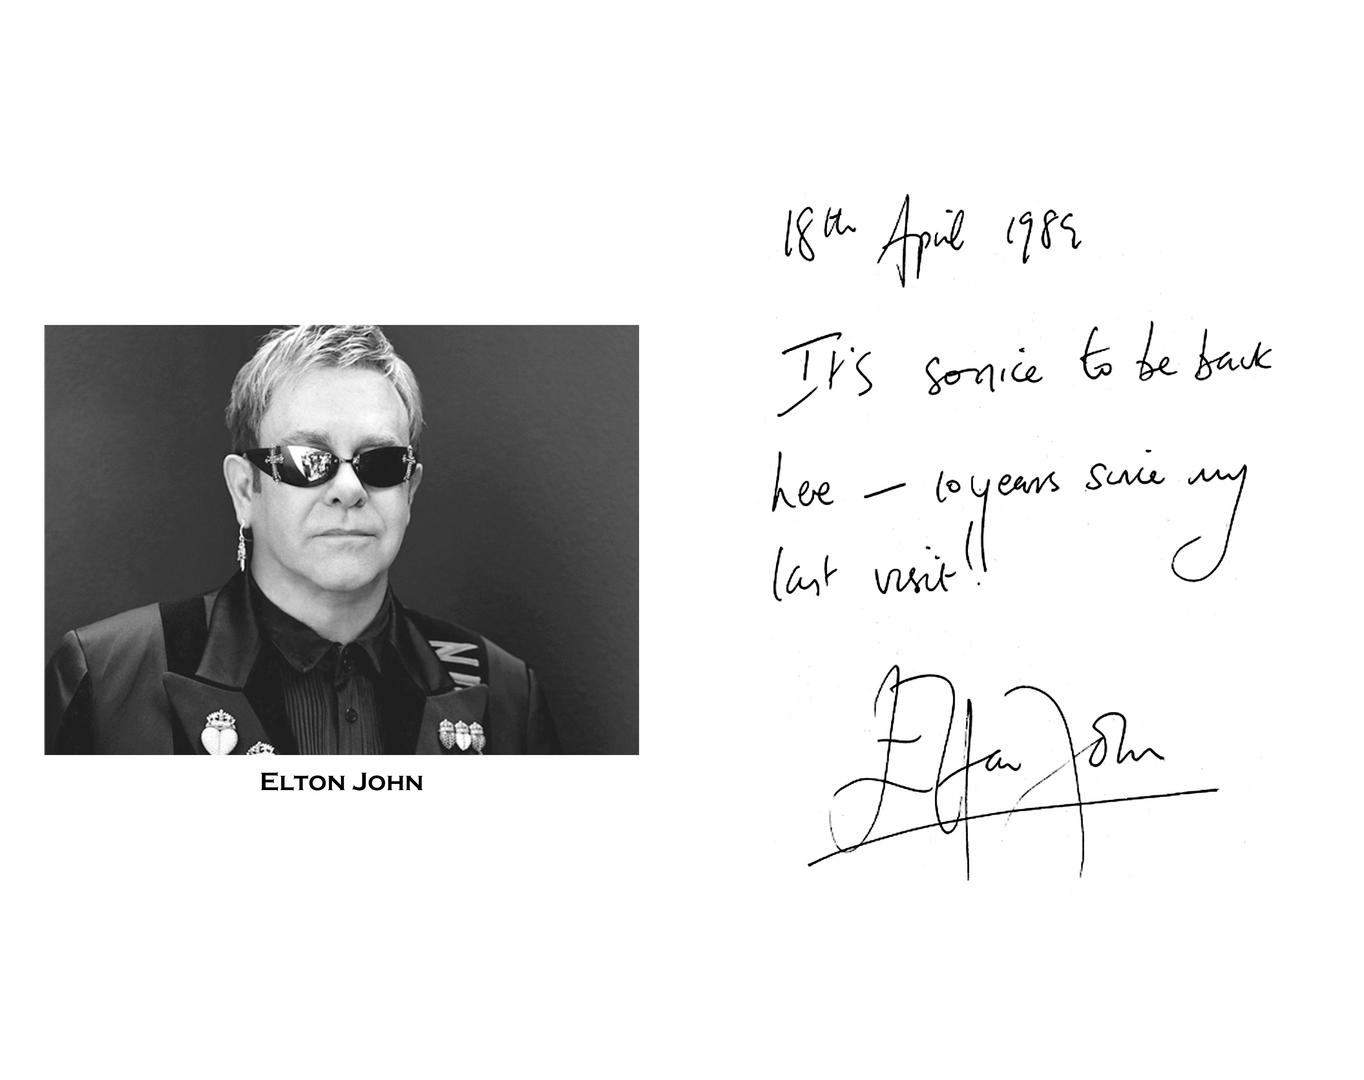 IN
ELTON JOHN
18th April 1989
It's so nice to be back
here — 10 years since my
last visit!!
Elton John